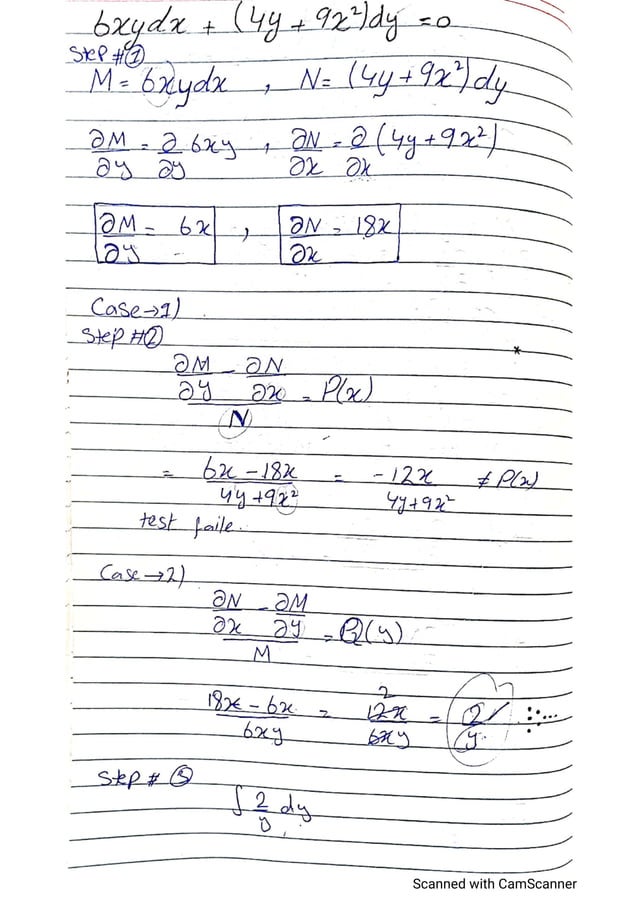 6xydx + (4y + 9x²)dy = 0
Step #①
M = 6xydx , N = (4y + 9x²)dy
∂M/∂y = ∂/∂y 6xy , ∂N/∂x = ∂/∂x (4y + 9x²)
∂M/∂y = 6x , ∂N/∂x = 18x
Case → 1)
Step #②
*
(∂M/∂y - ∂N/∂x)/N = P(x)
= (6x - 18x)/(4y + 9x²) = -12x/(4y + 9x²) ≠ P(x)
test faile.
Case → 2)
(∂N/∂x - ∂M/∂y)/M = Q(y)
(18x - 6x)/6xy = 2 12x/6xy = 2/y
Step # ③
∫ 2/y dy
Scanned with CamScanner